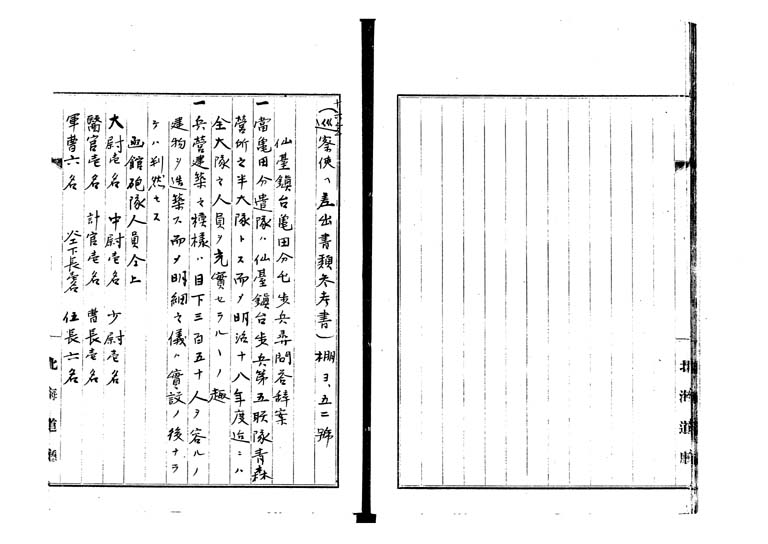 北海道廳
(巡察使ヘ差出書類参考書)棚ヨ、五二號
仙臺鎮台亀田分屯歩兵尋問答辞案
一當亀田分遣隊ハ仙臺鎮台歩兵第五聯隊青森
營所之半大隊トス而〆明治十八年度迄ニハ
全大隊之人員ヲ充實セラルヽノ趣
一兵營建築之模様ハ目下三百五十人ヲ容ルヽノ
建物ヲ造築ス而〆明細之儀ハ實設ノ後ナラ
テハ判然セス
函館砲隊人員仝上
大尉壱名 中尉壱名 少尉壱名
醫官壱名 計官壱名 曹長壱名
軍曹六名 長壱名 伍長六名
北海道廳